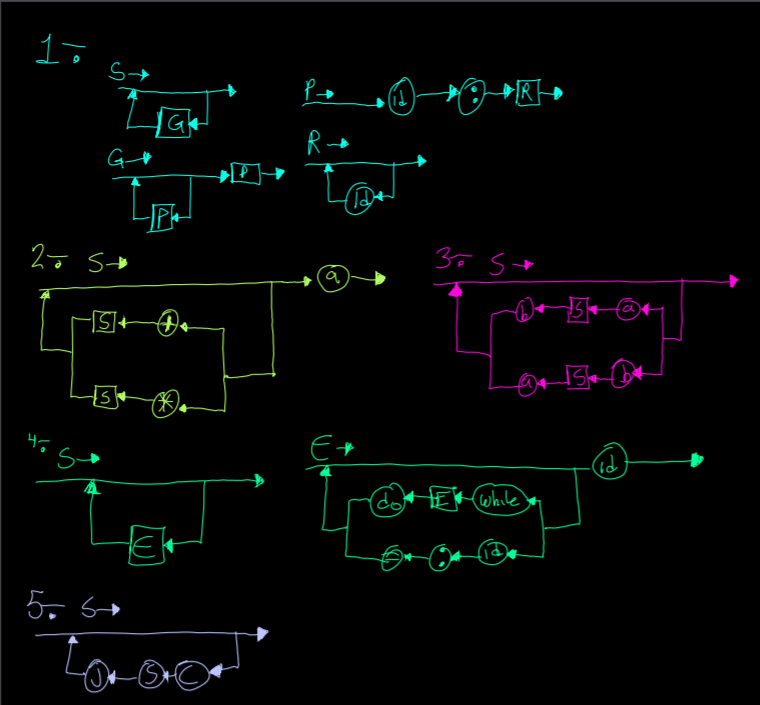 1:
S
G
P id : R
G P
P
R
id
2: S
a
S +
S *
3: S
b S a
a S b
4: S
E
E
id
do E while
= : id
5: S
J S C